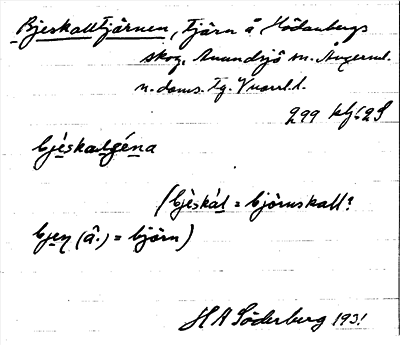 Bjeskalltjärnen, Tjärn å Hödanbergs
skog, Anundsjö sn. Ångerml.
n. doms. Tg. V norrl. l.
299 klj 62S
bjéskalǥéna
(bjèskál = björnskall?
bjeṇ (â.) = björn)
H A Söderberg 1931